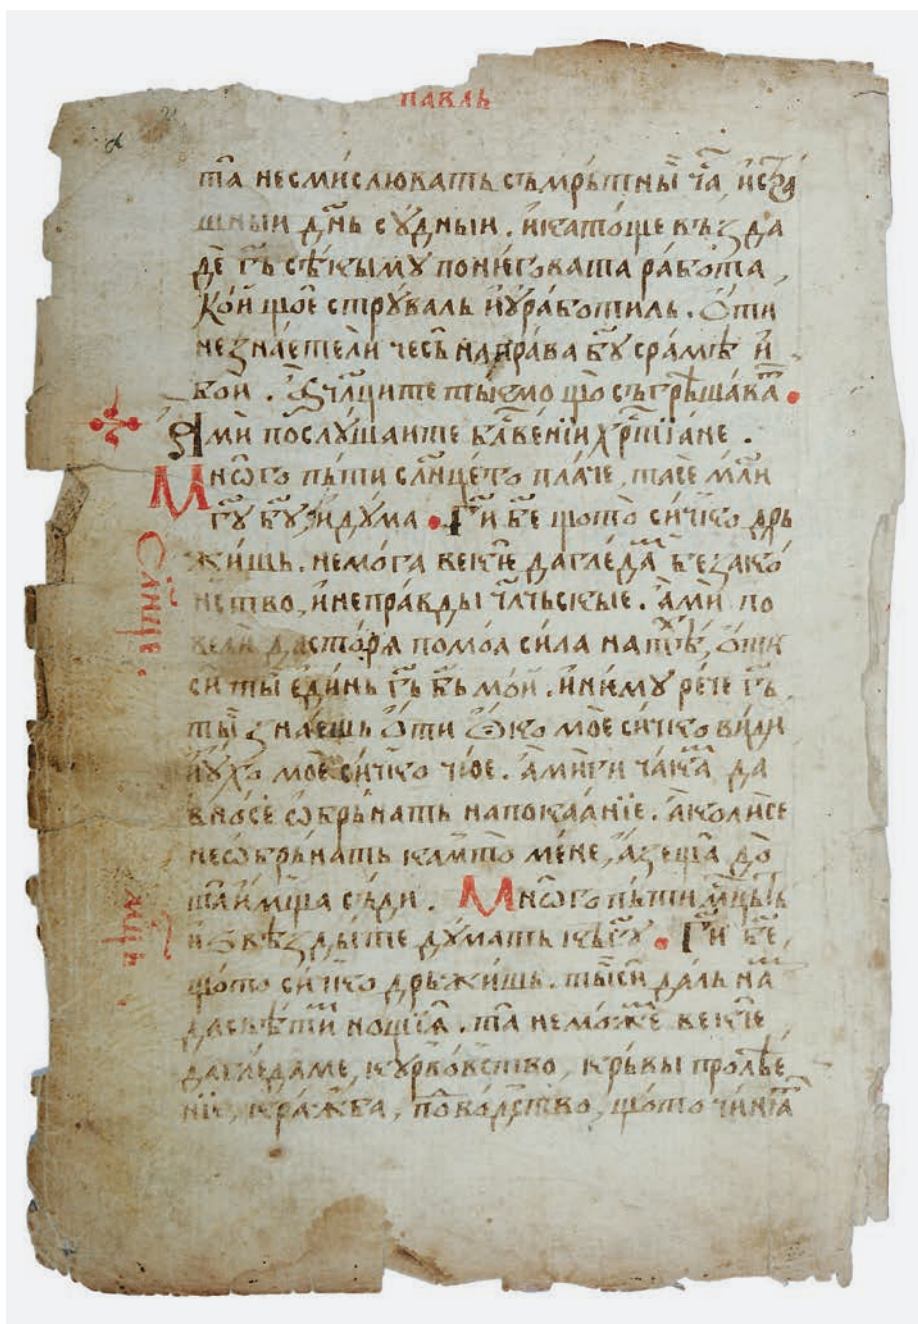 павль
та несмислюватъ съмрътны ча, истра
шныи днь сѹдныи. икатоще въз да
де гь сѣкымѹ понѥговата работа,
кои щое стрѹваль иѹработиль. ѻти
незнаетели чесъ надправа бѹ срамѣ и
кои. члците тыкмо що съгрѣшава.
Ами послѹшаите блгвеніи хрстіане.
Мнѡго пъти слнцето плаче, тасе мли
гѹ бѹ, идѹма. Ги бе щото сичко дръ
жишь. немога векіе дагледа беззако
нство, инеправды члчьскые. ами по
вели дасторя помоя сила на тѣ, ѻти
си ты единь гь бь мои. инимѹ рече гь
ты знаешь ѻти ѻко мое сичко види
иѹхо мое сичко чюе. амиги чака да
бносе ѡбрънать напокааніе. аколисе
неѡбрънать камто мене, азеща до
та имща сѫди. Мнѡго пъти мцьть
и ѕвѣздыте дѹмать къ гѹ. Ги бе,
щото сичко дръжишь. тыси даль на
дасвѣти нощіѧ. та неможе векіе
дагледаме, кѹрвовство, кръвы пролѣе
ніе, кражба, поваре͡тво, щото чинѧ
Слнце.
мцъ